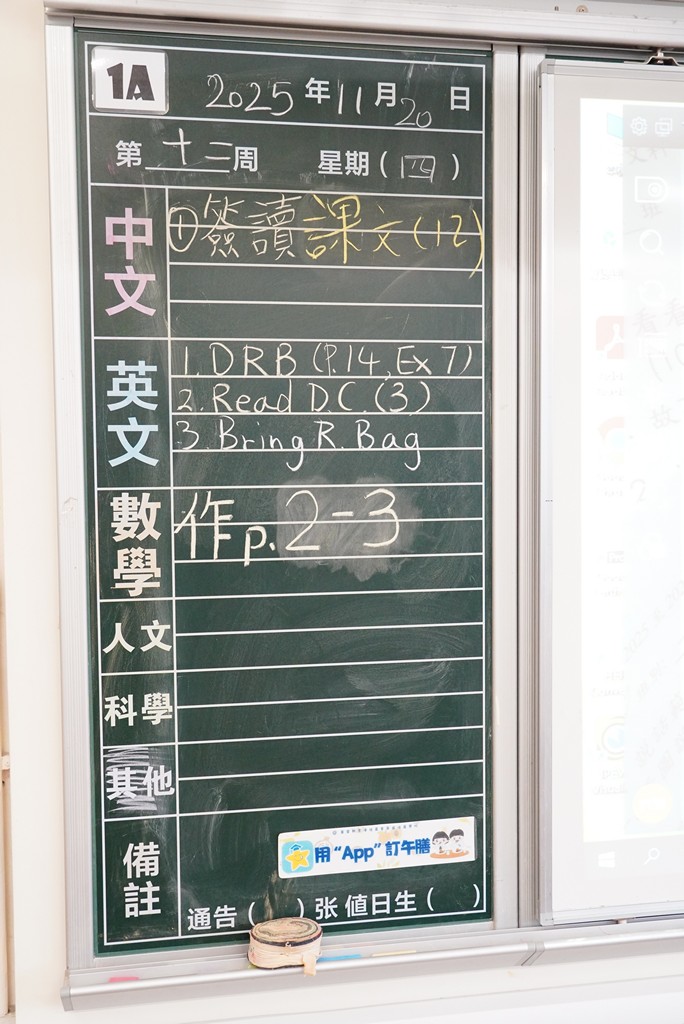 1A 2025年11月20日
第十二周 星期(四)
中文
①簽讀課文(12)
英文
1. DRB (P.14, Ex 7)
2. Read D.C. (3)
3. Bring R. Bag
數學
作p.2-3
人文
科學
其他
備註
用“App”訂午膳
通告( )张 值日生( )